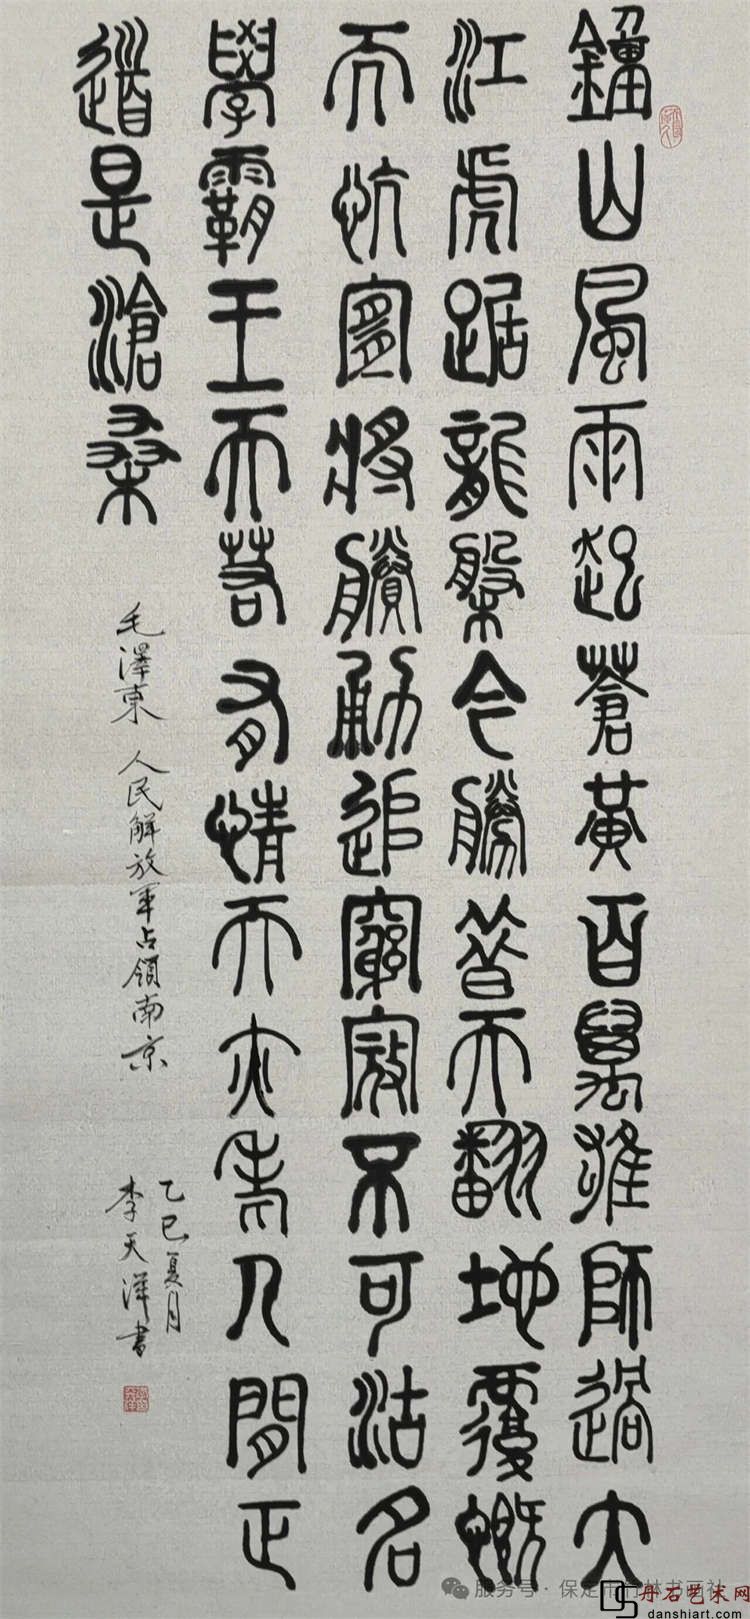 鍾山風雨起蒼黃百萬雄師過大
江虎踞龍槃今勝昔天翻地覆慨
而忼宜將賸勇追窮寇不可沽名
學霸王天若有情天亦老人間正
道是滄桑
毛澤東 人民解放軍占領南京
乙巳夏月
李天洋書
服务号·保定市竹林书画社
丹石艺术网
danshiart.com